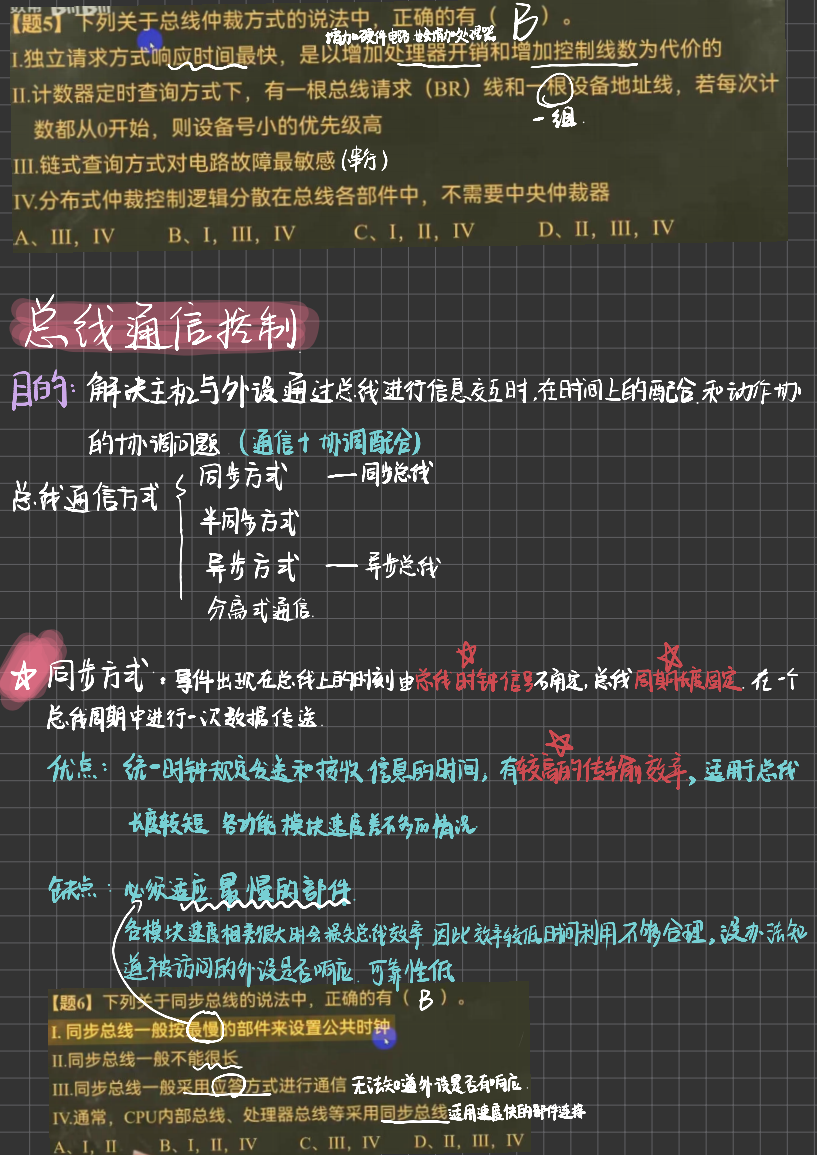 【题5】下列关于总线仲裁方式的说法中，正确的有（ B ）。
Ⅰ.独立请求方式响应时间最快，是以增加处理器开销和增加控制线数为代价的
Ⅱ.计数器定时查询方式下，有一根总线请求（BR）线和一根设备地址线，若每次计
一组.
数都从0开始，则设备号小的优先级高
Ⅲ.链式查询方式对电路故障最敏感 (串行)
Ⅳ.分布式仲裁控制逻辑分散在总线各部件中，不需要中央仲裁器
A、Ⅲ，Ⅳ B、Ⅰ，Ⅲ，Ⅳ C、Ⅰ，Ⅱ，Ⅳ D、Ⅱ，Ⅲ，Ⅳ
总线通信控制
目的：解决主机与外设通过总线进行信息交互时,在时间上的配合和动作协
的协调问题 （通信十协调配合）
总线通信方式
同步方式 — 同步总线
半同步方式
异步方式 — 异步总线
分离式通信.
☆ 同步方式：事件出现在总线上的时刻由总线时钟信号确定,总线周期长度固定.在一个
总线周期中进行一次数据传送.
优点：统一时钟规定发送和接收信息的时间，有较高的传输效率，适用于总线
长度较短 各功能模块速度差不多的情况
缺点：必须适应最慢的部件
各模块速度相差很大时会损失总线效率.因此效率较低时间利用不够合理，没办法知
道被访问的外设是否响应.可靠性低
【题6】下列关于同步总线的说法中，正确的有（ B ）。
Ⅰ.同步总线一般按最慢的部件来设置公共时钟
Ⅱ.同步总线一般不能很长
Ⅲ.同步总线一般采用应答方式进行通信 无法知道外设是否有响应.
Ⅳ.通常，CPU内部总线、处理器总线等采用同步总线 适用速度快的部件连接
A、Ⅰ，Ⅱ B、Ⅰ，Ⅱ，Ⅳ C、Ⅲ，Ⅳ D、Ⅱ，Ⅲ，Ⅳ